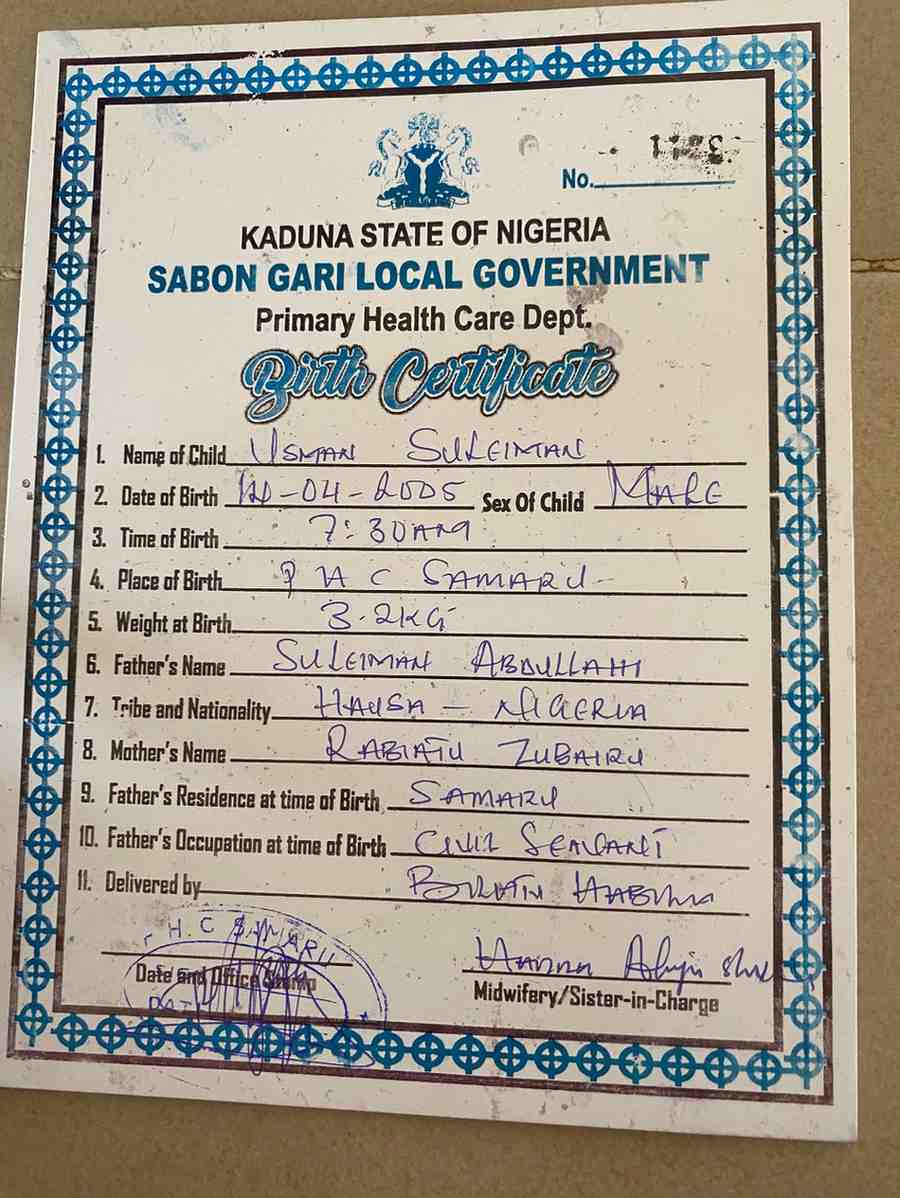 No.
KADUNA STATE OF NIGERIA
SABON GARI LOCAL GOVERNMENT
Primary Health Care Dept.
Birth Certificate
1. Name of Child USMAN SULEIMAN
2. Date of Birth -04-2005 Sex Of Child MALE
3. Time of Birth 7:30AM
4. Place of Birth P H C SAMARU
5. Weight at Birth 3.2KG
6. Father's Name SULEIMAN ABDULLAHI
7. Tribe and Nationality HAUSA - NIGERIA
8. Mother's Name RABIATU ZUBAIRU
9. Father's Residence at time of Birth SAMARU
10. Father's Occupation at time of Birth CIVIL SERVANT
11. Delivered by
H. C SAMARU
Date and Office Stamp
Midwifery/Sister-in-Charge